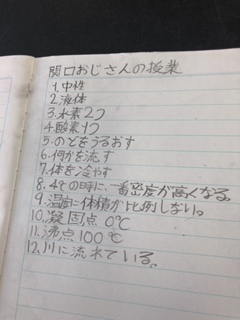 関口おじさんの授業
1.中性
2.液体
3.水素2つ
4.酸素1つ
5.のどをうるおす
6.何かを流す
7.体を冷やす
8.4℃の時に、一番密度が高くなる。
9.温度に体積が比例しない。
10.凝固点 0℃
11.沸点100℃
12.川に流れている。